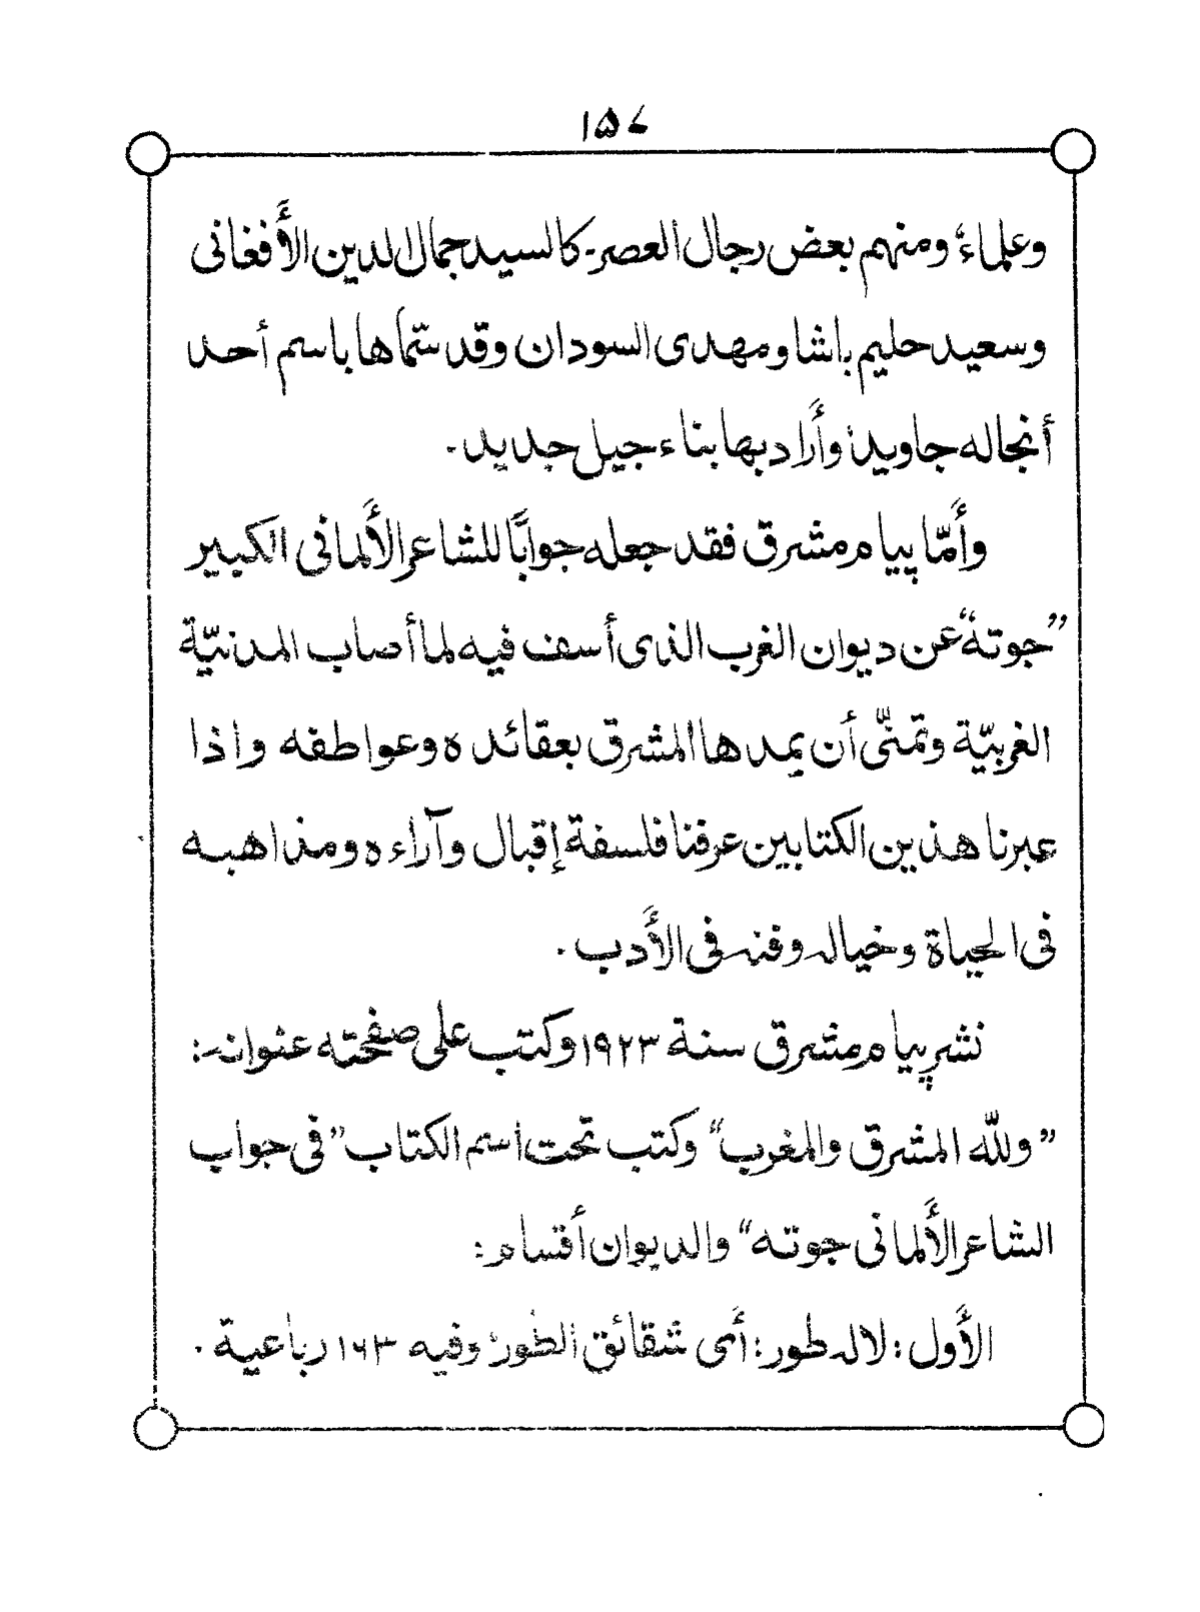 ١٥٤
وعلماء ومنهم بعض رجال العصر۔كالسيد جمال الدين الأفغانى
وسعيد حليم باشا ومهدى السودان وقد سمّاها باسم أحد
أنجاله جاويد وأراد بها بناء جيل جديد ۔
وأمّا پيام مشرق فقد جعله جوابًا للشاعر الألمانى الكبير
”جوته“ عن ديوان الغرب الذى أسف فيه لما أصاب المدنيّة
الغربيّة وتمنّى أن يمدها المشرق بعقائده وعواطفه واذا
عبرنا هذين الكتابين عرفنا فلسفة إقبال وآراءه ومذاهبه
فى الحياة وخياله وفنه فى الأدب ۔
نشر پيام مشرق سنة ١٩٢٣ وكتب على صفحته عنوانه:
” ولله المشرق والمغرب“ وكتب تحت اسم الكتاب ”فى جواب
الشاعر الألمانى جوته“ والديوان أقسام:
الأول : لاله طور : أى شقائق الطور وفيه ١٦٣ رباعية ۔